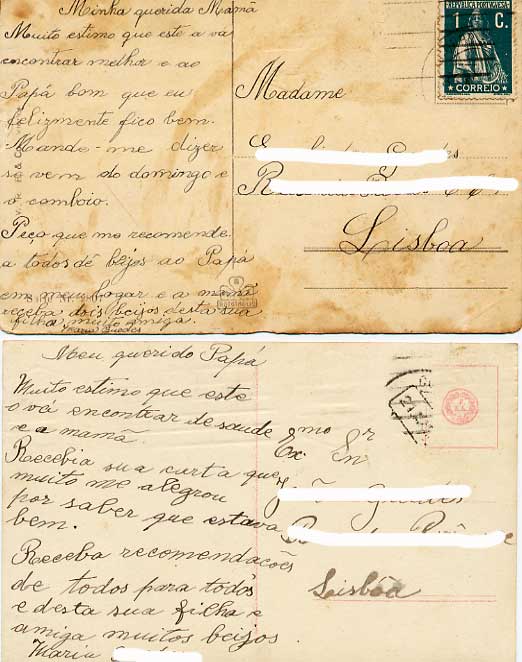 Minha querida Mamã
Muito estimo que este a vá
encontrar melhor e ao
Papá bom que eu
felizmente fico bem.
Mande-me dizer
se vem do domingo e
o comboio.
Peço que me recomende
a todos dê beijos ao Papá
em meu logar e a mamã
receba dois beijos desta sua
filha muito amiga.
Maria Guedes
REPUBLICA PORTUGUESA
1 C.
CORREIO
Madame
Lisboa
Meu querido Papá
Muito estimo que este
o vá encontrar de saude
e a mamã.
Recebia sua carta que
muito me alegrou
por saber que estava
bem.
Receba recomendações
de todos para todos
e desta sua filha e
amiga muitos beijos
Maria
Exmo Snr
Guedes
Lisbôa